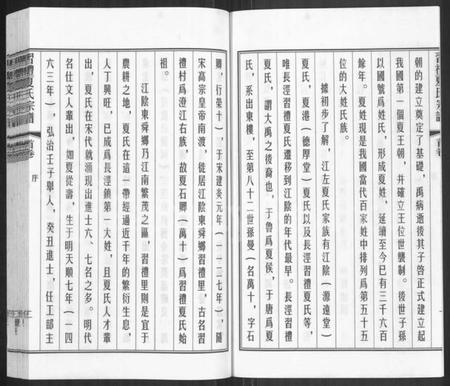 朝的建立奠定了基礎，禹病逝後其子啓正式建立起
我國第一個夏王朝，并確立王位世襲制。後世子孫
以國號爲姓氏，形成夏姓，延續至今已有三千六百
餘年。夏姓現是我國當代百家姓中排列爲第五十五
位的大姓氏族。
據初步了解，江左夏氏家族有江陰（源遠堂）
夏氏，夏港（德厚堂）夏氏以及長涇習禮夏氏等，
唯長涇習禮夏氏遷移到江陰的年代最早。長涇習禮
夏氏，謂大禹之後裔也，于魯爲夏侯，于唐爲夏
氏，系出東樓，至第八十二世孫曼（名萬十，字石
卿，行榮十），于宋建炎元年（一一二七年），隨
宋高宗皇帝南渡，徙居江陰東舜鄉習禮里，古名習
禮村爲澄江右族，故夏石卿（萬十）爲習禮夏氏始
祖。
江陰東舜鄉乃江南繁茂之區，習禮里則是宜于
農耕之地，夏氏在這一帶經過近千年的繁衍生息，
人丁興旺，已成爲長涇鎮第一大姓，且夏氏人才輩
出，夏氏在宋代就涌現出進士六、七名之多。明代
名仕文人輩出，如夏從壽，生于明天順七年（一四
六三年），弘治壬子舉人，癸丑進士，任工部主
習禮夏氏宗譜
首卷
序